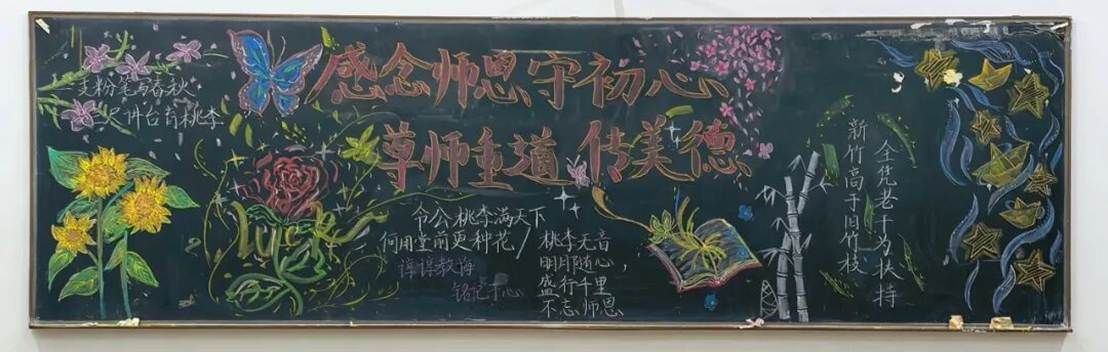 支粉笔写春秋
三尺讲台育桃李
感念师恩守初心
尊师重道 传美德
令公桃李满天下
何用堂前更种花
谆谆教悔
铭记于心
桃李无音
随心，
盛行千里
不忘师恩
新竹高于旧竹枝
全凭老干为扶持